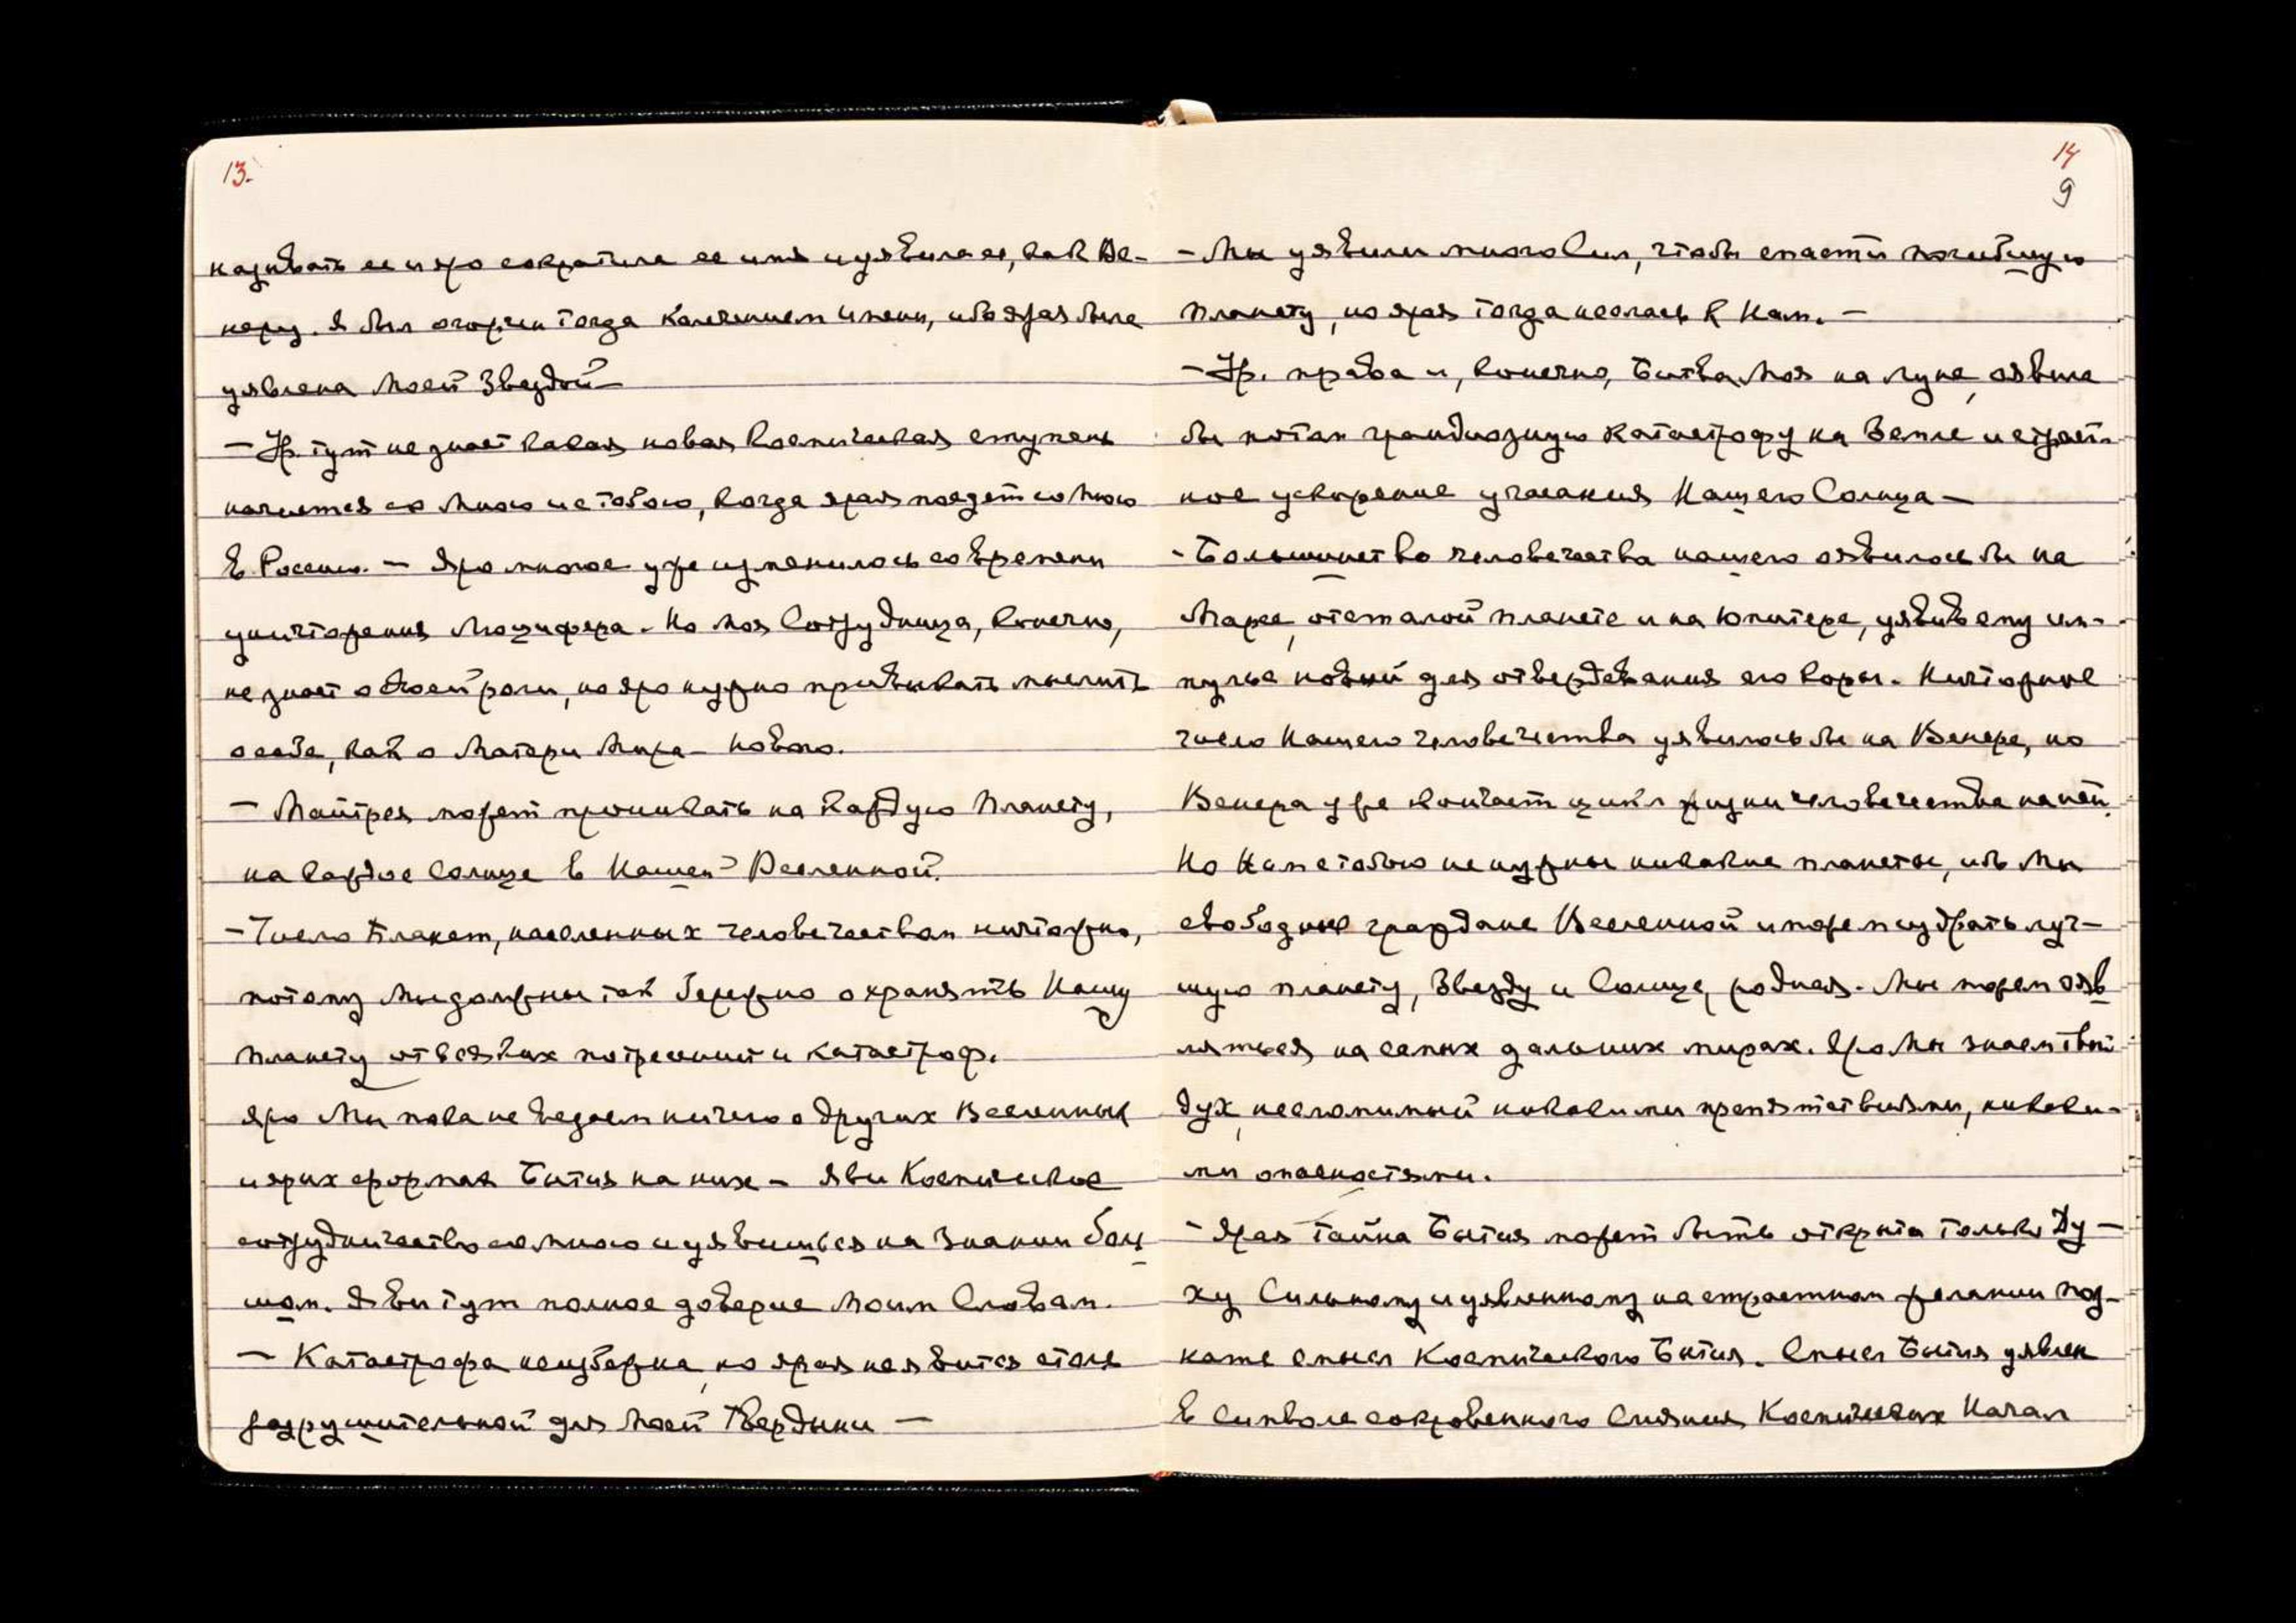 13.
называть ее и яро сократила ее имя и уявила ее, как Ве-
неру. Я был огорчен тогда калечением Имени, ибо ярая была
уявлена Моей Звездой —
— Ур. тут не знает какая новая Космическая ступень
начнется со Мною и с тобою, когда ярая поедет со Мною
в Россию. — Яро многое уже изменилось со времени
уничтожения Люцифера. Но Моя Сотрудница, конечно,
не знает о своей роли, но яро нужно привыкать мыслить
о себе, как о Матери Мира — Нового.
— Майтрея может проникать на каждую Планету,
на каждое Солнце в Нашей Вселенной.
— Число Планет, населенных человечеством ничтожно,
потому Мы должны так бережно охранять Нашу
планету от всяких потрясений и катастроф.
Яро Мы пока не ведаем ничего о других Вселенных
и ярих формах Бытия на них — Яви Космическое
сотрудничество со мною и уявишься на Знании боль
шом. Яви тут полное доверие Моим Словам.
— Катастрофа неизбежна, но ярая не явится столь
разрушительной для Моей Твердыни —
14
9
— Мы уявили много Сил, чтобы спасти погибшую
планету, но ярая тогда неслась к Нам. —
— Ур. права и, конечно, Битва Моя на Луне, оявила
бы потом грандиозную катастрофу на Земле и страст-
ное ускорение угасания Нашего Солнца —
— Большинство человечества нашего оявилось бы на
Марсе, отсталой планете и на Юпитере, уявив ему им-
пульс новый для отвердевания его коры. Ничтожное
число Нашего человечества уявилось бы на Венере, но
Венера уже кончает цикл жизни человечества на ней.
Но Нам с тобою не нужны никакие планеты, ибо Мы
свободные граждане Вселенной и можем избрать луч-
шую планету, Звезду и Солнце, родная. Мы можем ояв
ляться на самых дальних мирах. Яро Мы знаем твой
дух, несломимый никакими препятствиями, никаки-
ми опасностями.
— Ярая тайна Бытия может быть открыта только Ду-
ху Сильному и уявленному на страстном желании поз-
нать смысл Космического Бытия. Смысл Бытия уявлен
в символе сокровенного Слияния Космических Начал